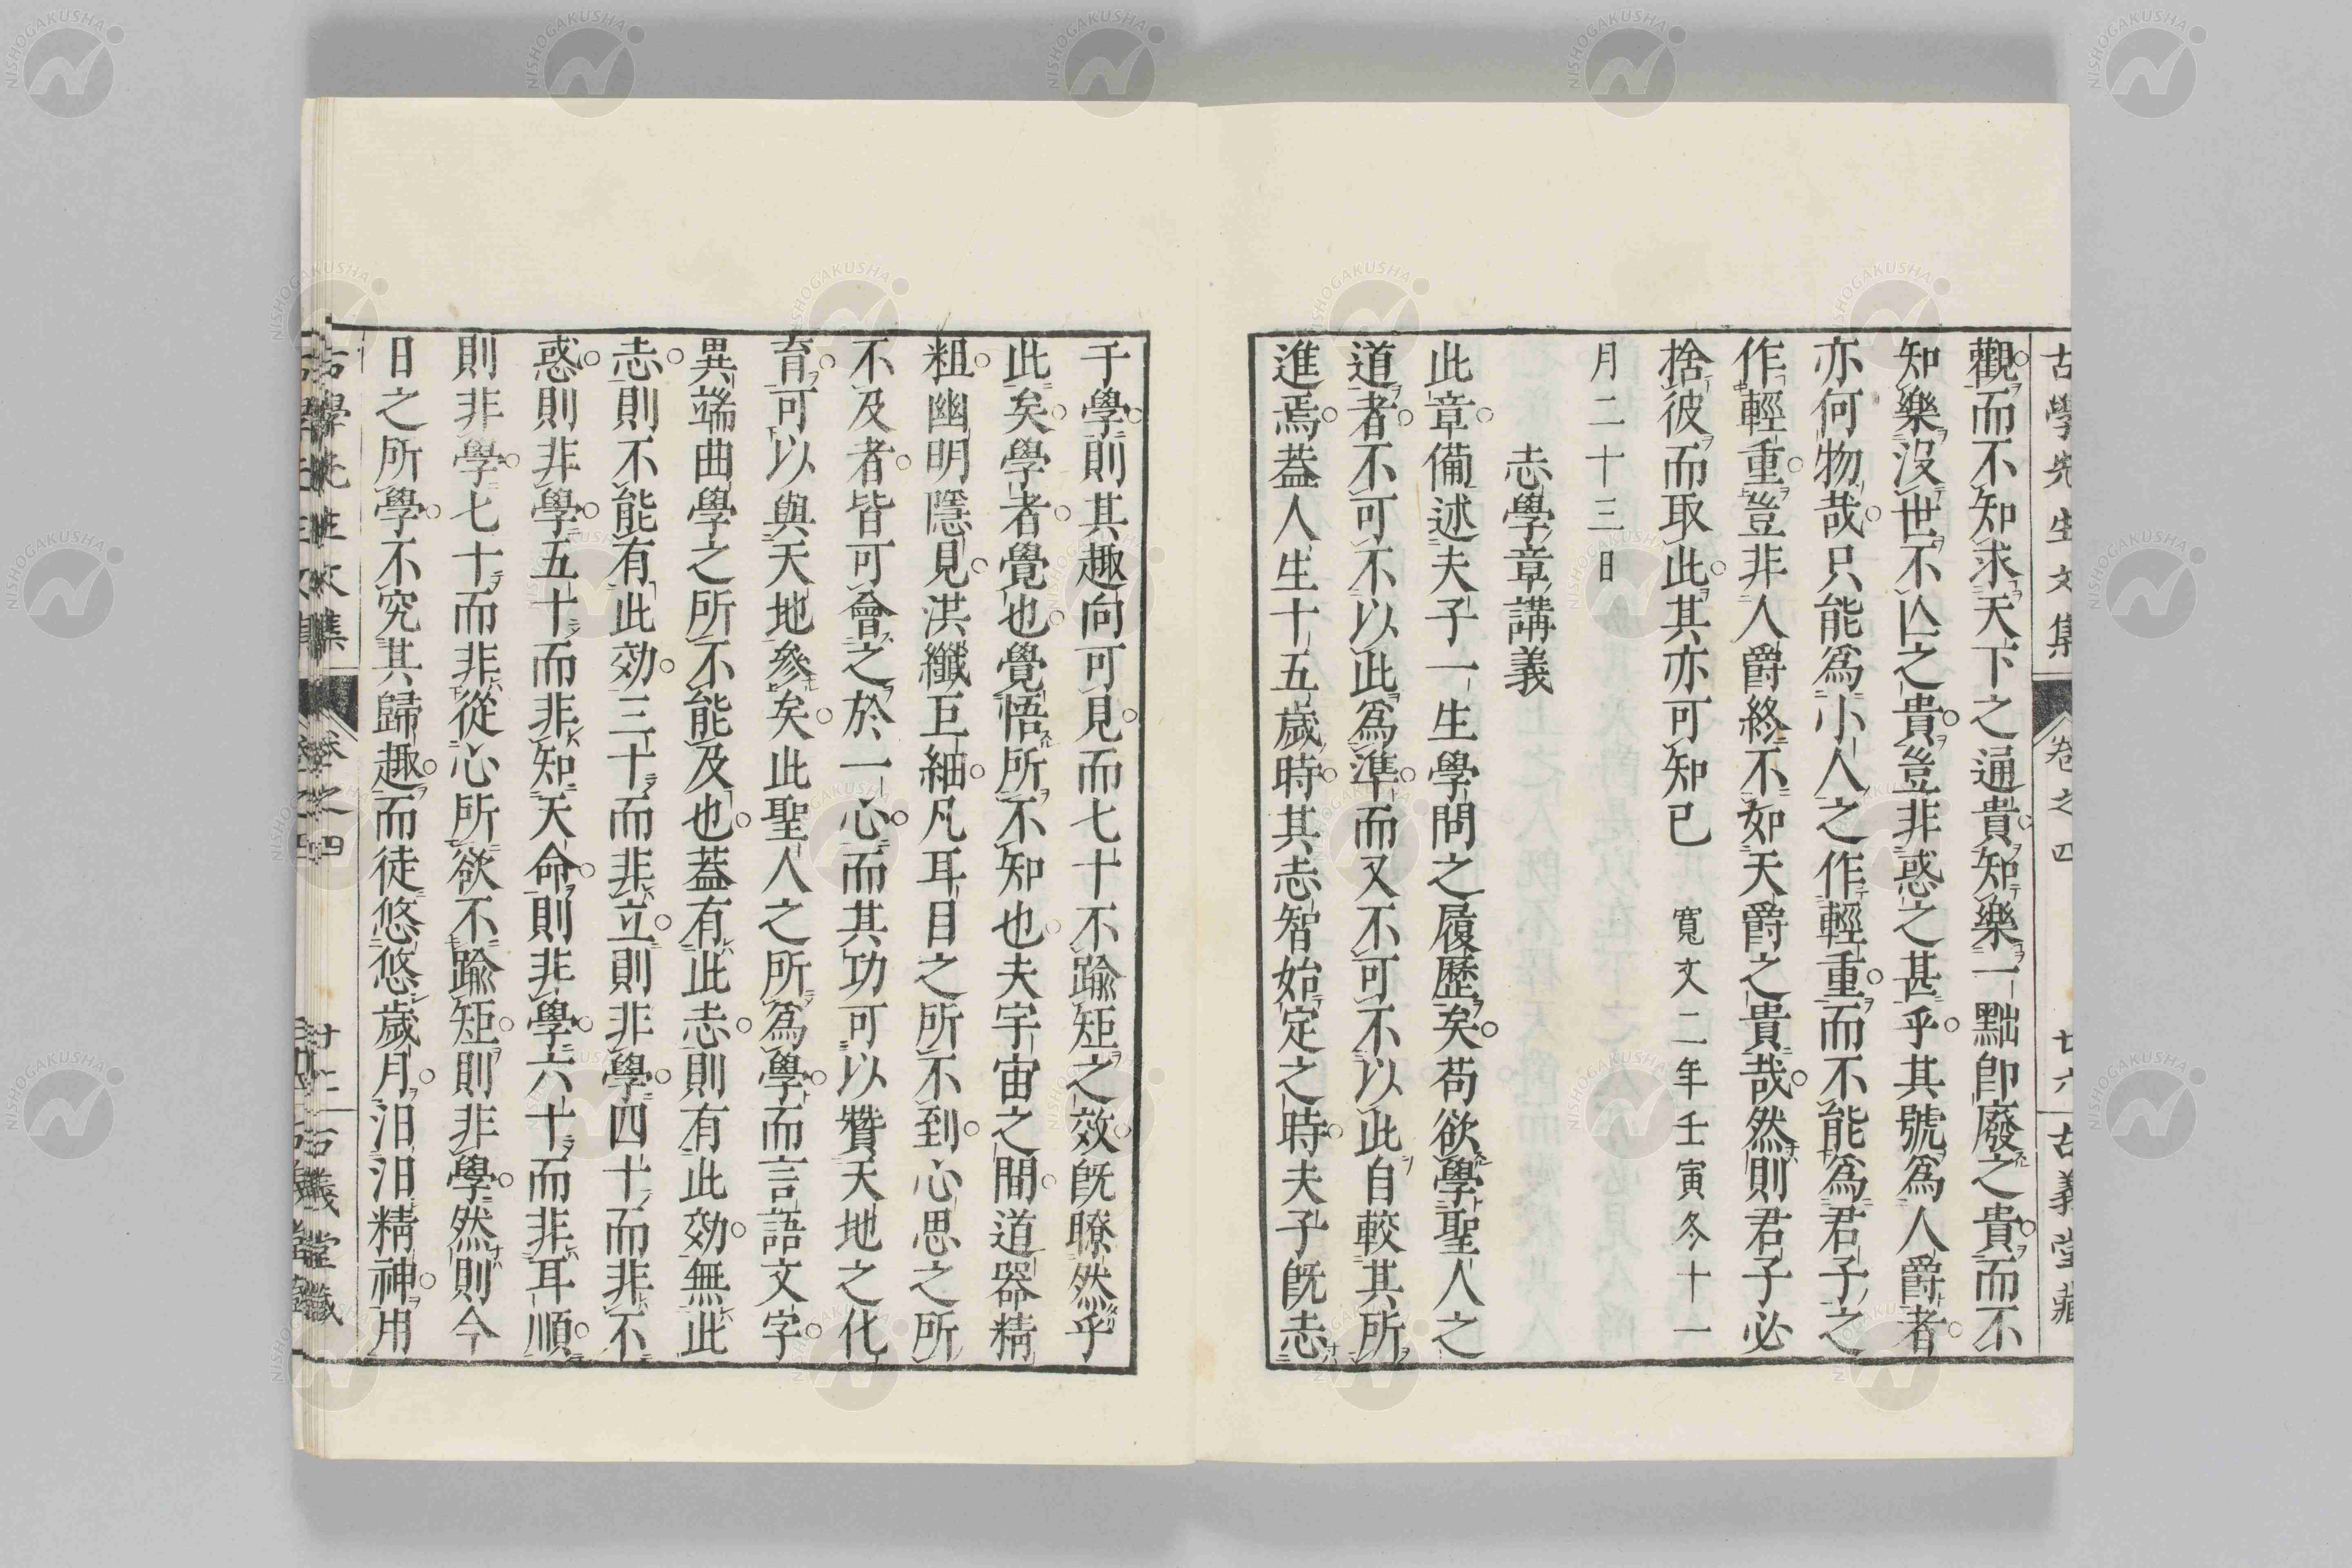 古學先生文集 卷之四 廿六 古義堂藏
觀而不知求天下之通貴知樂一黜卽廢之貴而不
知樂沒世不亾之貴豈非惑之甚乎其號爲人爵者
亦何物哉只能爲小人之作輕重而不能爲君子之
作輕重豈非人爵終不如天爵之貴哉然則君子必
捨彼而取此其亦可知已 寬文二年壬寅冬十一
月二十三日
志學章講義
此章備述夫子一生學問之履歷矣苟欲學聖人之
道者不可不以此爲準而又不可不以此自較其所
進焉葢人生十五歲時其志智始定之時夫子旣志
于學則其趣向可見而七十不踰矩之效旣瞭然乎
此矣學者覺也覺悟所不知也夫宇宙之間道器精
粗幽明隱見洪纎巨細凡耳目之所不到心思之所
不及者皆可會之於一心而其功可以贊天地之化
育可以與天地參矣此聖人之所爲學而言語文字
異端曲學之所不能及也葢有此志則有此効無此
志則不能有此効三十而非立則非學四十而非不
惑則非學五十而非知天命則非學六十而非耳順
則非學七十而非從心所欲不踰矩則非學然則今
日之所學不究其歸趣而徒悠悠歲月汨汨精神用
古學先生文集 卷之四